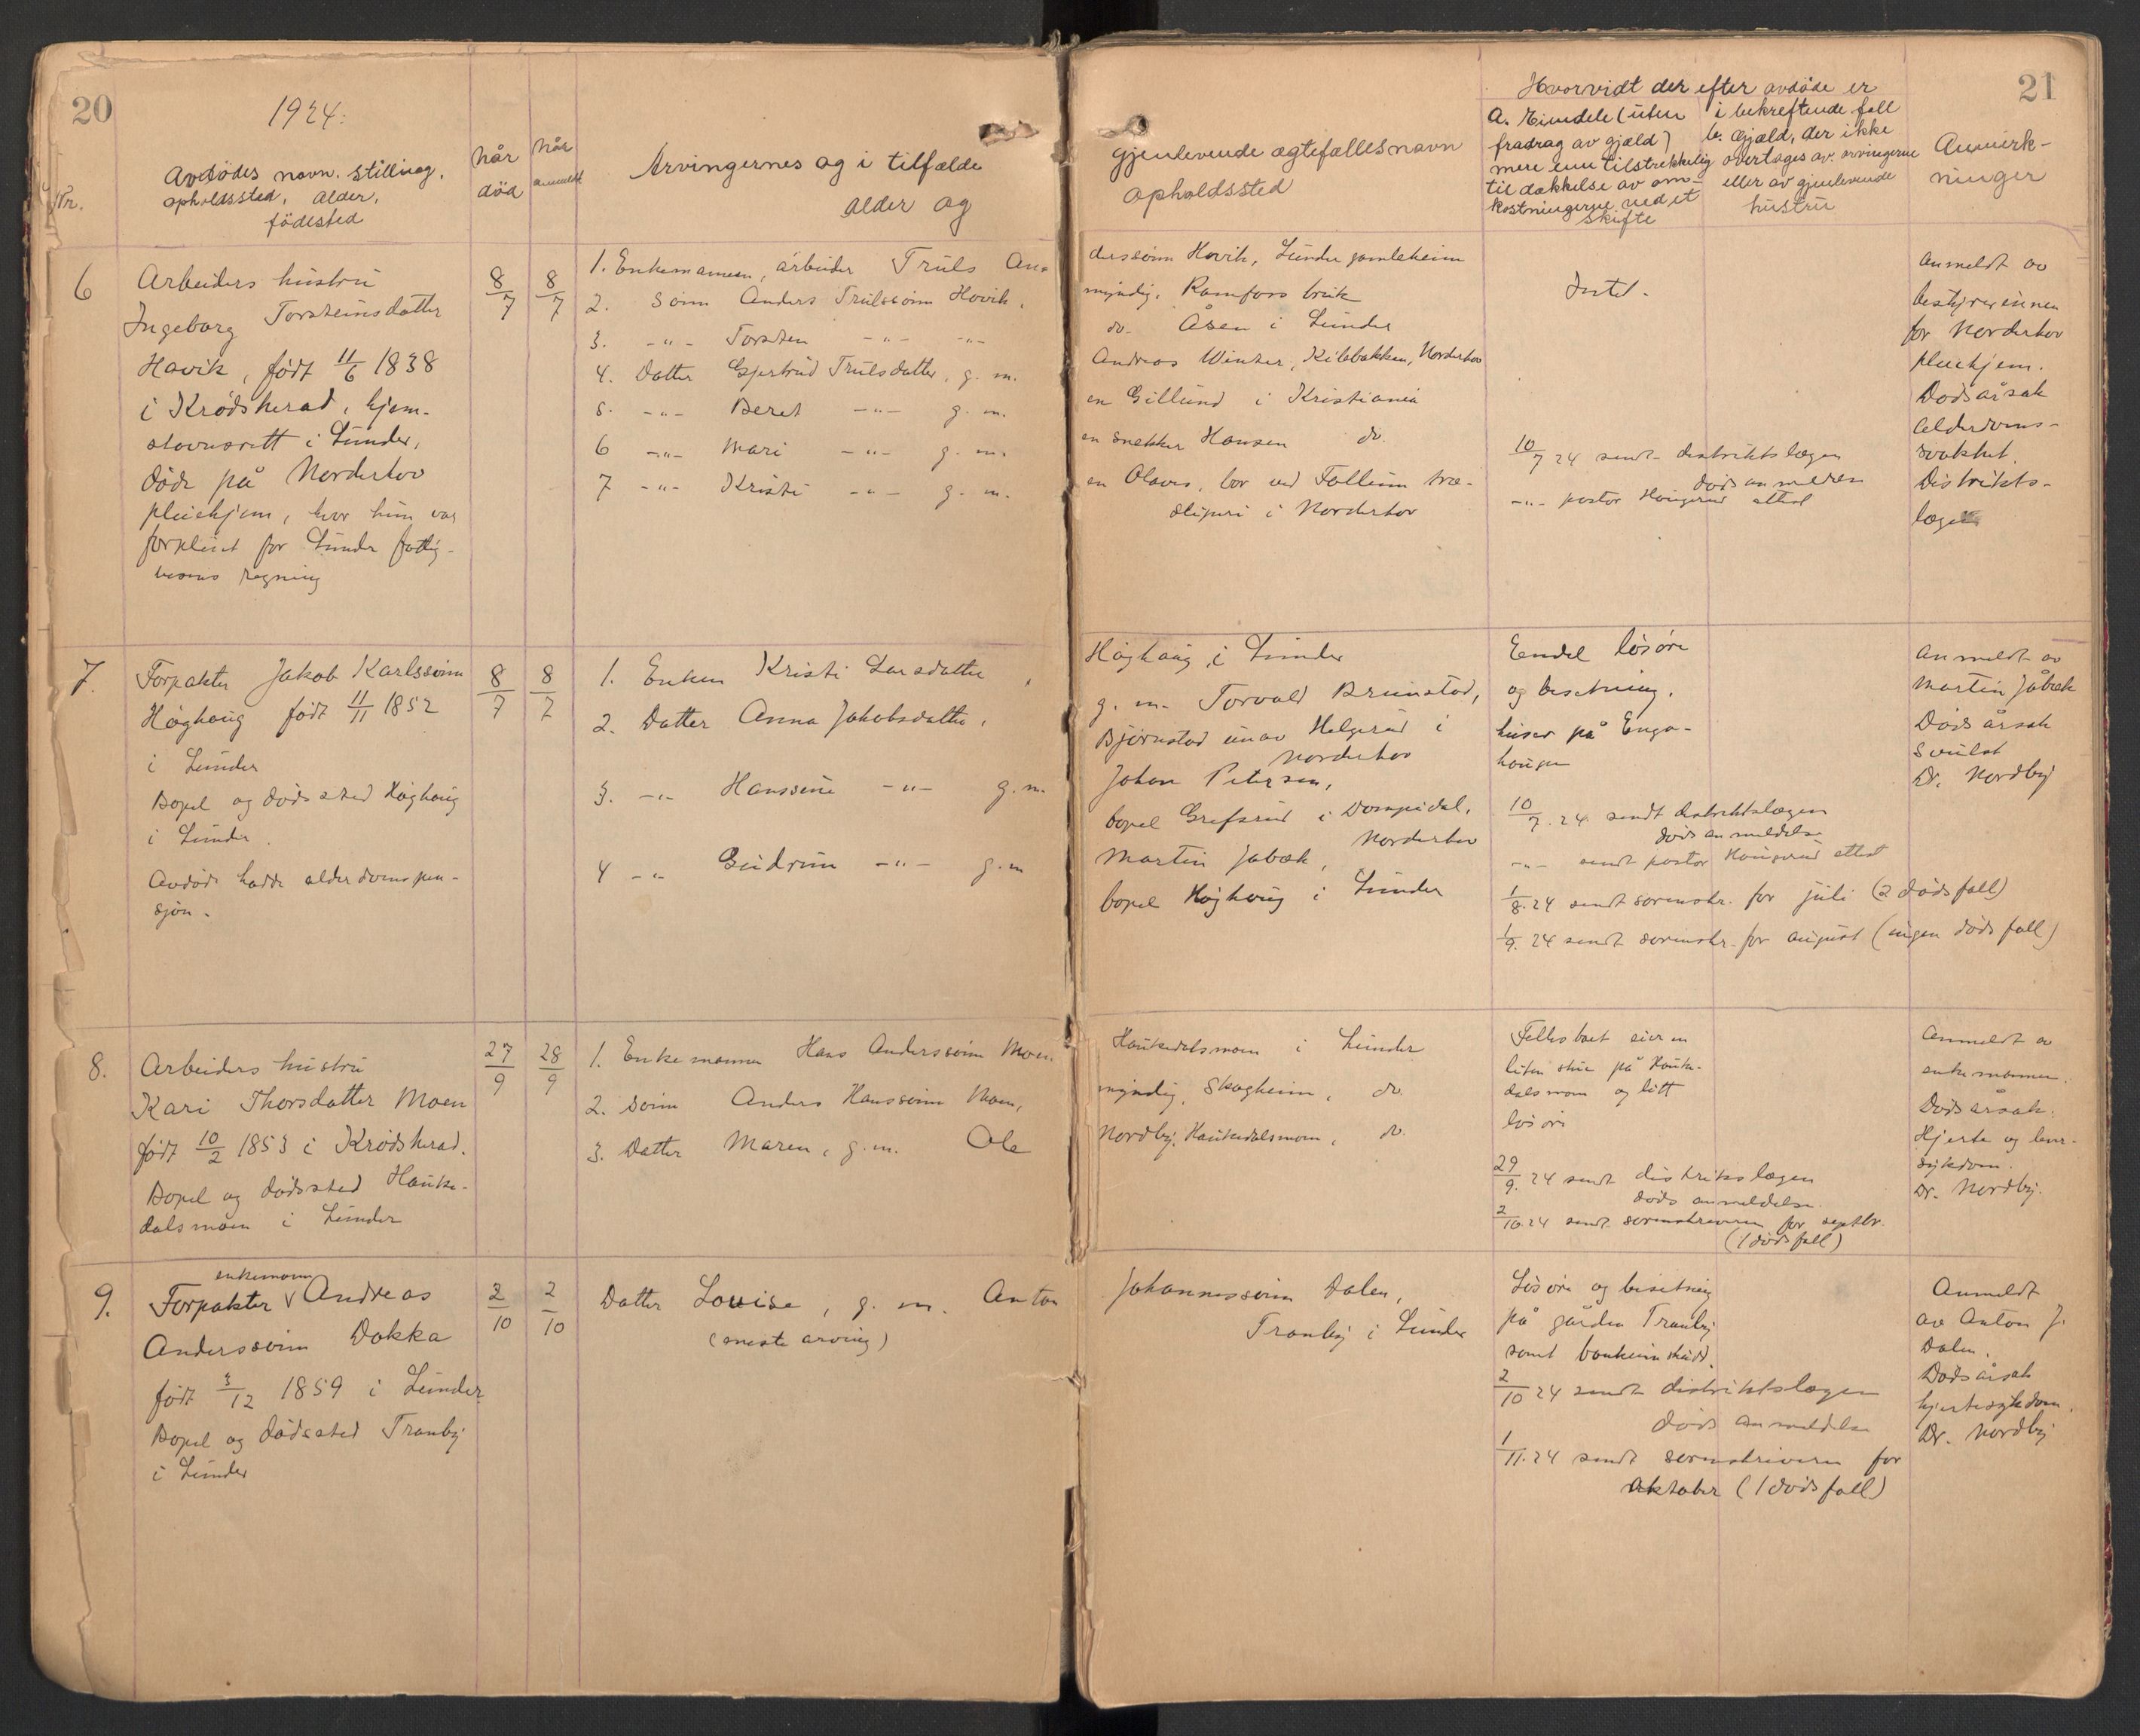 20
1924.
Nr.
Avdødes navn. Stilling.
opholdssted, alder,
fødested
Når
død
Når
anmeldt
Arvingernes og i tilfælde
alder og
6
Arbeiders hustru
Ingeborg Torsteinsdatter
Hovik, født 11/6 1838
i Krødsherad, hjem-
stavnsrett i Lunder,
døde på Norderhov
pleiehjem, hvor hun var
forpleiet for Lunder fattig-
vesens regning
8/7
8/7
1. Enkemannen, arbeider Truls An-
2. Sønn Anders Trulssønn Hovik,
3. -"- Torsten -"- -"-
4. Datter Gjertrud Trulsdatter, g. m.
5. -"- Beret -"- g. m.
6 -"- Mari -"- g. m.
7 -"- Kristi -"- g. m.
7.
Forpakter Jakob Karlssønn
Høghaug født 11/11 1852
i Lunder
Bopel og dødssted Høghaug
i Lunder.
Avdøde hadde alderdomspen-
sjon.
8/7
8/7
1. Enken Kristi Larsdatter,
2. Datter Anna Jakobsdatter,
3. -"- Hanssine -"- g. m.
4 -"- Gudrun -"- g. m
8.
Arbeiders hustru
Kari Thorsdatter Moen
født 10/2 1853 i Krødsherad.
Bopel og dødssted Hauke-
dalsmoen i Lunder
27/9
28/9
1. Enkemannen Hans Anderssønn Moen.
2. Sønn Anders Hanssønn Moen,
3. Datter Maren, g. m. Ole
9.
enkemann
Forpakter v Andreas
Anderssønn Dokka
født 3/12 1859 i Lunder.
Bopel og dødssted Tranby
i Lunder
2/10
2/10
Datter Louise, g. m. Anton
(eneste arving)
21
gjenlevende ægtefælles navn
opholdssted
Hvorvidt der efter avdøde er
a. Eiendele (uten
fradrag av gjæld)
mere enn tilstrekkelig
til dækkelse av om-
kostningerne ved et
skifte
i bekreftende fall
b. Gjæld, der ikke
overtages av arvingerne
eller av gjenlevende
hustru
Anmerk-
ninger
derssønn Hovik, Lunder gamleheim
myndig, Ramfoss bruk
do. Åsen i Lunder
Andreas Winter, Kilebakken, Norderhov
en Gillund i Kristiania
en snekker Hansen do.
en Olaves, bor ved Follum træ-
sliperi i Norderhov
Intet.
10/7 24 sendt distriktslægen
dødsanmeldelse
-"- pastor Haugerud attest
Anmeldt av
bestyrerinnen
for Norderhov
pleiehjem.
Dødsårsak
alderdoms-
svakhet.
Distrikts-
lægen
Høghaug i Lunder
g. m. Torvald Brunstad,
Bjørnstad under Helgerud i
Norderhov
Johan Petersen,
bopel Grefsrud i Sompedal,
Norderhov
Martin Jabæk,
bopel Høghaug i Lunder
Endel løsøre
og besetning,
huser på Enga-
haugen
10/7.24. sendt distriktslægen
dødsanmeldelse
-"- sendt pastor Haugerud attest
1/8.24 sendt sorenskr. for juli (2 dødsfall)
1/9.24 sendt sorenskr. for august (ingen dødsfall)
Anmeldt av
Martin Jabæk
Dødsårsak
Svulst
Dr. Nordby
Haukedalsmoen i Lunder
myndig, Skogheim, do.
Nordby, Haukedalsmoen, do.
Fellesboet eier en
liten stue på Hauke-
dalsmoen og litt
løsøre
29/9.24 sendt distriktslægen
dødsanmeldelse.
2/10.24 sendt sorenskriveren for septbr.
(1 dødsfall)
Anmeldt av
enkemannen.
Dødsårsak:
Hjerte og lever-
sykdom.
Dr. Nordby.
Johannessønn Dalen,
Tranby i Lunder
Løsøre og besetning
på gården Tranby
samt bankinnskudd.
2/10 24 sendt distriktslægen
dødsanmeldelse
1/11.24 sendt sorenskriveren for
oktober (1 dødsfall)
Anmeldt
av Anton J.
Dalen.
Dødsårsak
hjertesykdom.
Dr. Nordby